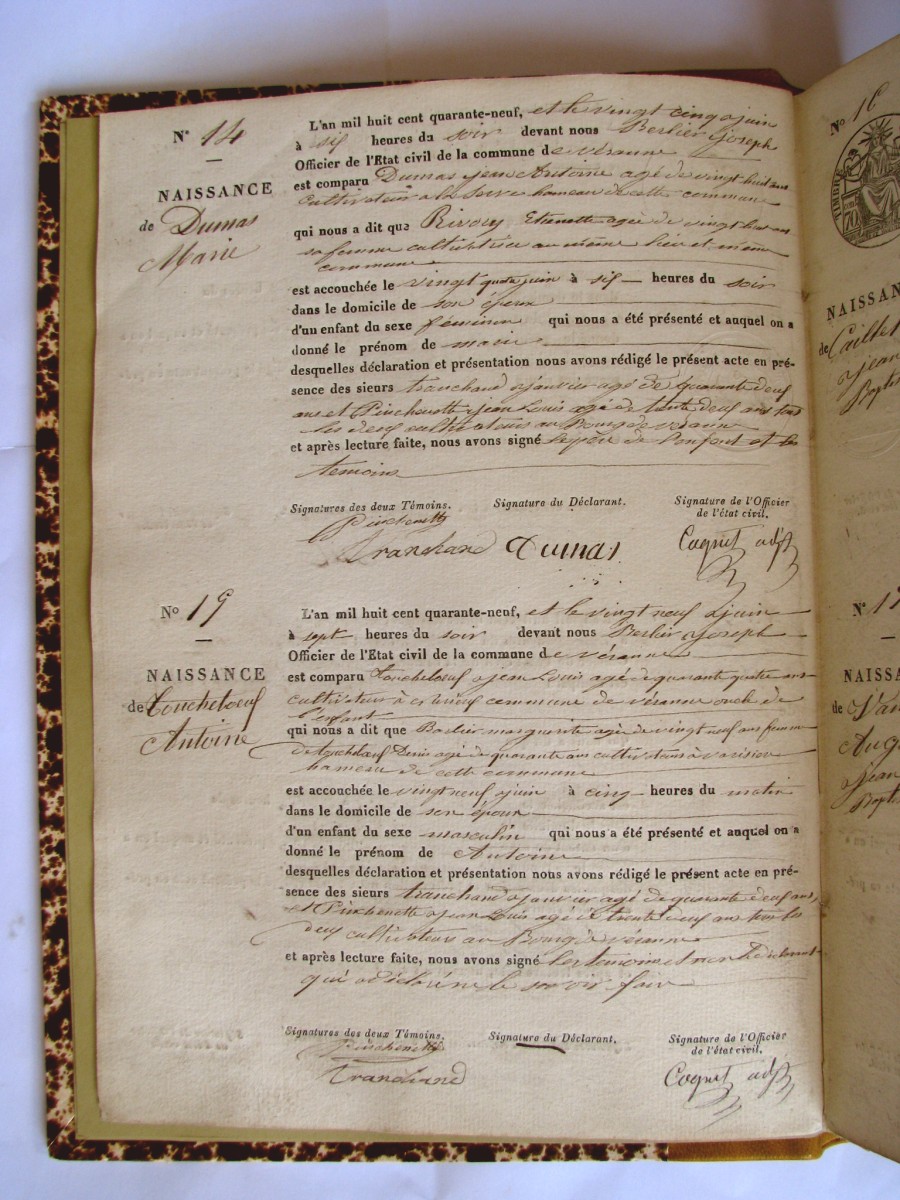 N° 14
NAISSANCE
de Dumas
Marie
L'an mil huit cent quarante-neuf, et le vingt cinq juin
à six heures du soir devant nous Berlier Joseph
Officier de l'Etat civil de la commune de véranne
est comparu Dumas jean Antoine agé de vingt huit ans
cultivateur a la hameau de cette commune
qui nous a dit que Etienette agée de vingt ans
sa femme cultivatrice au même lieu et même
commune
est accouchée le vingt quatre juin à six heures du soir
dans le domicile de son époux
d'un enfant du sexe féminin qui nous a été présenté et auquel on a
donné le prénom de marie
desquelles déclaration et présentation nous avons rédigé le présent acte en pré-
sence des sieurs tranchand janvier agé de quarante deux
ans et Pinchenotte jean Louis agé de trente deux ans tous
les deux cultivateurs au Bourg de véranne
et après lecture faite, nous avons signé le père de l'enfant et les
temoins
Signatures des deux Témoins. Signature du Déclarant. Signature de l'Officier
de l'état civil.
Pinchenotte
Tranchand Dumas Coqnet adjt
No 19
NAISSANCE
de toucheboeuf
Antoine
L'an mil huit cent quarante-neuf, et le vingt neuf juin
à sept heures du soir devant nous Berlier Joseph
Officier de l'Etat civil de la commune de véranne
est comparu toucheboeuf jean Louis agé de quarante quatre ans
cultivateur à commune de véranne oncle de
l'enfant
qui nous a dit que marguerite agée de vingt neuf ans femme
de toucheboeuf Denis agé de quarante ans cultivateurs à
hameau de cette commune
est accouchée le vingt neuf juin à cinq heures du matin
dans le domicile de son époux
d'un enfant du sexe masculin qui nous a été présenté et auquel on a
donné le prénom de Antoine
desquelles déclaration et présentation nous avons rédigé le présent acte en pré-
sence des sieurs tranchand janvier agé de quarante deux ans,
et Pinchenotte jean Louis agé de trente deux ans tous les
deux cultivateurs au Bourg de véranne
et après lecture faite, nous avons signé les temoins et non le déclarant
qui a déclaré ne le savoir faire
Signatures des deux Témoins. Signature du Déclarant. Signature de l'Officier
de l'état civil.
Pinchenotte
Tranchand Coqnet adjt
No 16
TIMBRE
70
NAISSAN
de
jean
Baptis
N° 1
NAISS
de
Aug
jean
Baptis